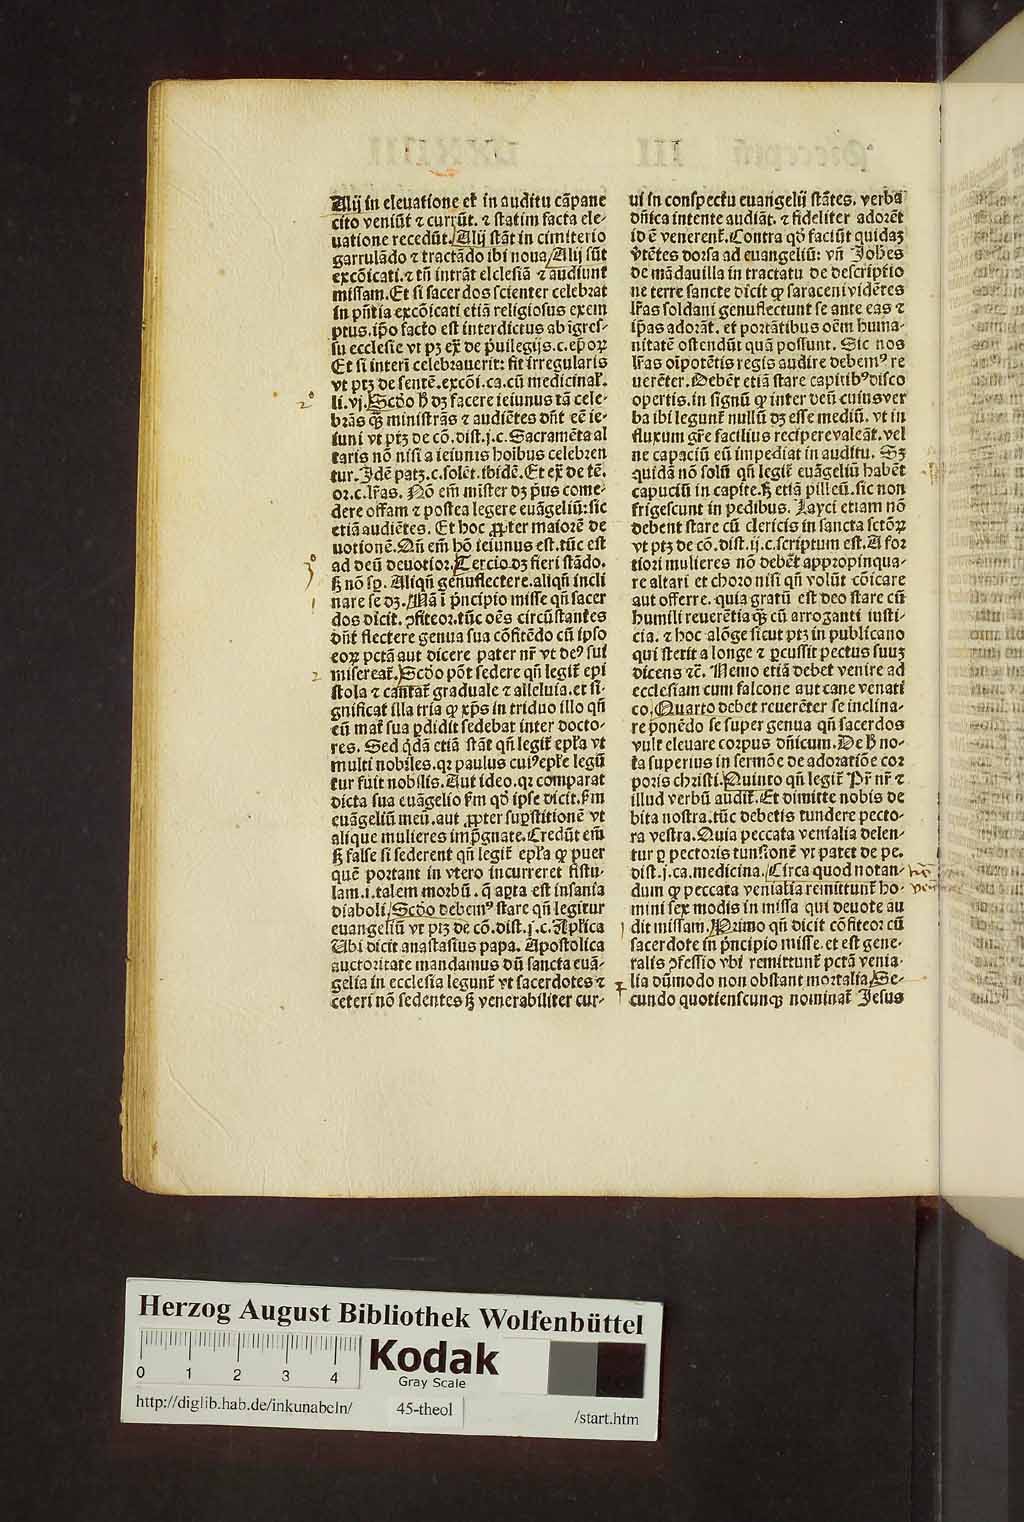 Alij in eleuatione et in auditu cāpane
cito veniūt ⁊ currūt. ⁊ statim facta ele-
uatione recedūt. Alij stāt in cimiterio
garrulādo ⁊ tractādo ibi noua/Alij sūt
excōicati. ⁊ tn̄ intrāt elclesiā ⁊ audiunt
missam. Et si sacerdos scienter celebrat
in pn̄tia excōicati etiā religiosus exem
ptus. ip̄o facto est interdictus ab īgres-
su ecclesie vt pꝫ ex̄ de p̄uilegijs. c. ep̄oꝝ
Et si interī celebrauerit: fit irregularis
vt ptꝫ de sentē. excōi. ca. cū medicinal̄.
li. vj. Scd̄o ħ dꝫ facere ieiunus tā cele-
brās qꝫ̄ ministrās ⁊ audiētes dn̄t eē ie-
iuni vt ptꝫ de cō. dist. j. c. Sacramēta al
taris nō nisi a ieiunis hoībus celebren
tur. Idē patꝫ. c. solēt. ibidē. Et ex̄ de tē.
or. c. lr̄as. Nō em̄ mister dꝫ p̄us come-
dere offam ⁊ postea legere euāgeliū: sic
etiā audiētes. Et hoc ꝓpter maiorē de
uotionē. Qn̄ em̄ hō ieiunus est. tūc est
ad deū deuotior. Tercio dꝫ fieri stādo.
ꝫ̄ nō sꝑ. Aliqn̄ genuflectere. aliqn̄ incli
nare se dꝫ. Nā ī p̄ncipio misse qn̄ sacer
dos dicit. ꝯfiteor. tūc oēs circūstantes
dn̄t flectere genua sua cōfitēdo cū ipso
eoꝝ pctā aut dicere pater nr̄ vt deꝰ sui
misereat̄. Scd̄o pōt sedere qn̄ legit̄ epi
stola ⁊ cantat̄ graduale ⁊ alleluia. et si-
gnificat illa tria ꝙ xp̄s in triduo illo qn̄
eū mat̄ sua ꝑdidit sedebat inter docto-
res. Sed q̄dā etiā stāt qn̄ legit̄ epl̄a vt
multi nobiles. qꝛ paulus cuiꝰ epl̄e legū
tur fuit nobilis. Aut ideo. qꝛ comparat
dicta sua euāgelio ẜm qd̄ ipse dicit. ẜm
euāgeliū meū. aut ꝓpter suꝑstitionē vt
alique mulieres imp̄gnate. Credūt em̄
ꝫ̄ false si sederent qn̄ legit̄ epl̄a ꝙ puer
quē portant in vtero incurreret fistu-
lam. i. talem morbū. q̄ apta est insania
diaboli/Scd̄o debemꝰ stare qn̄ legitur
euangeliū vt ptꝫ de cō. dist. j. c. Apl̄ica
Ubi dicit anastasius papa. Apostolica
auctoritate mandamus dū sancta euā-
gelia in ecclesia legunt̄ vt sacerdotes ⁊
ceteri nō sedentes ꝫ̄ venerabiliter cur-
ui in conspectu euangelij stātes. verba
dn̄ica intente audiāt. ⁊ fideliter adorēt
id ē venerent̄. Contra qd̄ faciūt quidaꝫ
v̄tētes dorsa ad euangeliū: vn̄ Joh̄es
de mādauilla in tractatu de descriptio
ne terre sancte dicit ꝙ saraceni vidētes
lr̄as soldani genuflectunt se ante eas ⁊
ip̄as adorāt. et portātibus oēm huma-
nitatē ostendūt quā possunt. Sic nos
lr̄as oīpotētis regis audire debemꝰ re
uerēter. Debēt etiā stare capitibꝰ disco
opertis. in signū ꝙ inter deū cuius ver
ba ibi legunt̄ nullū dꝫ esse mediū. vt in
fluxum gr̄e facilius recipere valeāt. vel
ne capaciū eū impediat in auditu. Sꝫ
quidā nō solū qn̄ legit̄ euāgeliū habēt
capuciū in capite. ꝫ̄ etiā pilleū. sic non
frigescunt in pedibus. Layci etiam nō
debent stare cū clericis in sancta sctōꝝ
vt ptꝫ de cō. dist. ij. c. scriptum est. A for
tiori mulieres nō debēt appropinqua-
re altari et choro nisi qn̄ volūt cōicare
aut offerre. quia gratū est deo stare cū
humili reuerētia qꝫ̄ cū arroganti iusti-
cia. ⁊ hoc alōge sicut ptꝫ in publicano
qui stetit a longe ⁊ ꝑcussit pectus suuꝫ
dicens ⁊c̄. Nemo etiā debet venire ad
ecclesiam cum falcone aut cane venati
co. Quarto debet reuerēter se inclina-
re ponēdo se super genua qn̄ sacerdos
vult eleuare corpus dn̄icum. De ħ no-
ta superius in sermōe de adoratiōe cor
poris christi. Quinto qn̄ legit̄ Pr̄ nr̄ ⁊
illud verbū audit̄. Et dimitte nobis de
bita nostra. tūc debetis tundere pecto-
ra vestra. Quia peccata venialia delen-
tur ꝑ pectoris tunsionē vt patet de pe.
dist. j. ca. medicina. Circa quod notan-
dum ꝙ peccata venialia remittunt̄ ho-
mini sex modis in missa qui deuote au
dit missam. Primo qn̄ dicit cōfiteor cū
sacerdote in p̄ncipio misse. et est gene-
ralis ꝯfessio vbi remittunt̄ pctā venia-
lia dūmodo non obstant mortalia/Se-
cundo quotienscunqꝫ nominat̄ Jesus
Herzog August Bibliothek Wolfenbüttel
0 1 2 3 4
Kodak
Gray Scale
http://diglib.hab.de/inkunabeln/
45-theol
/start.htm